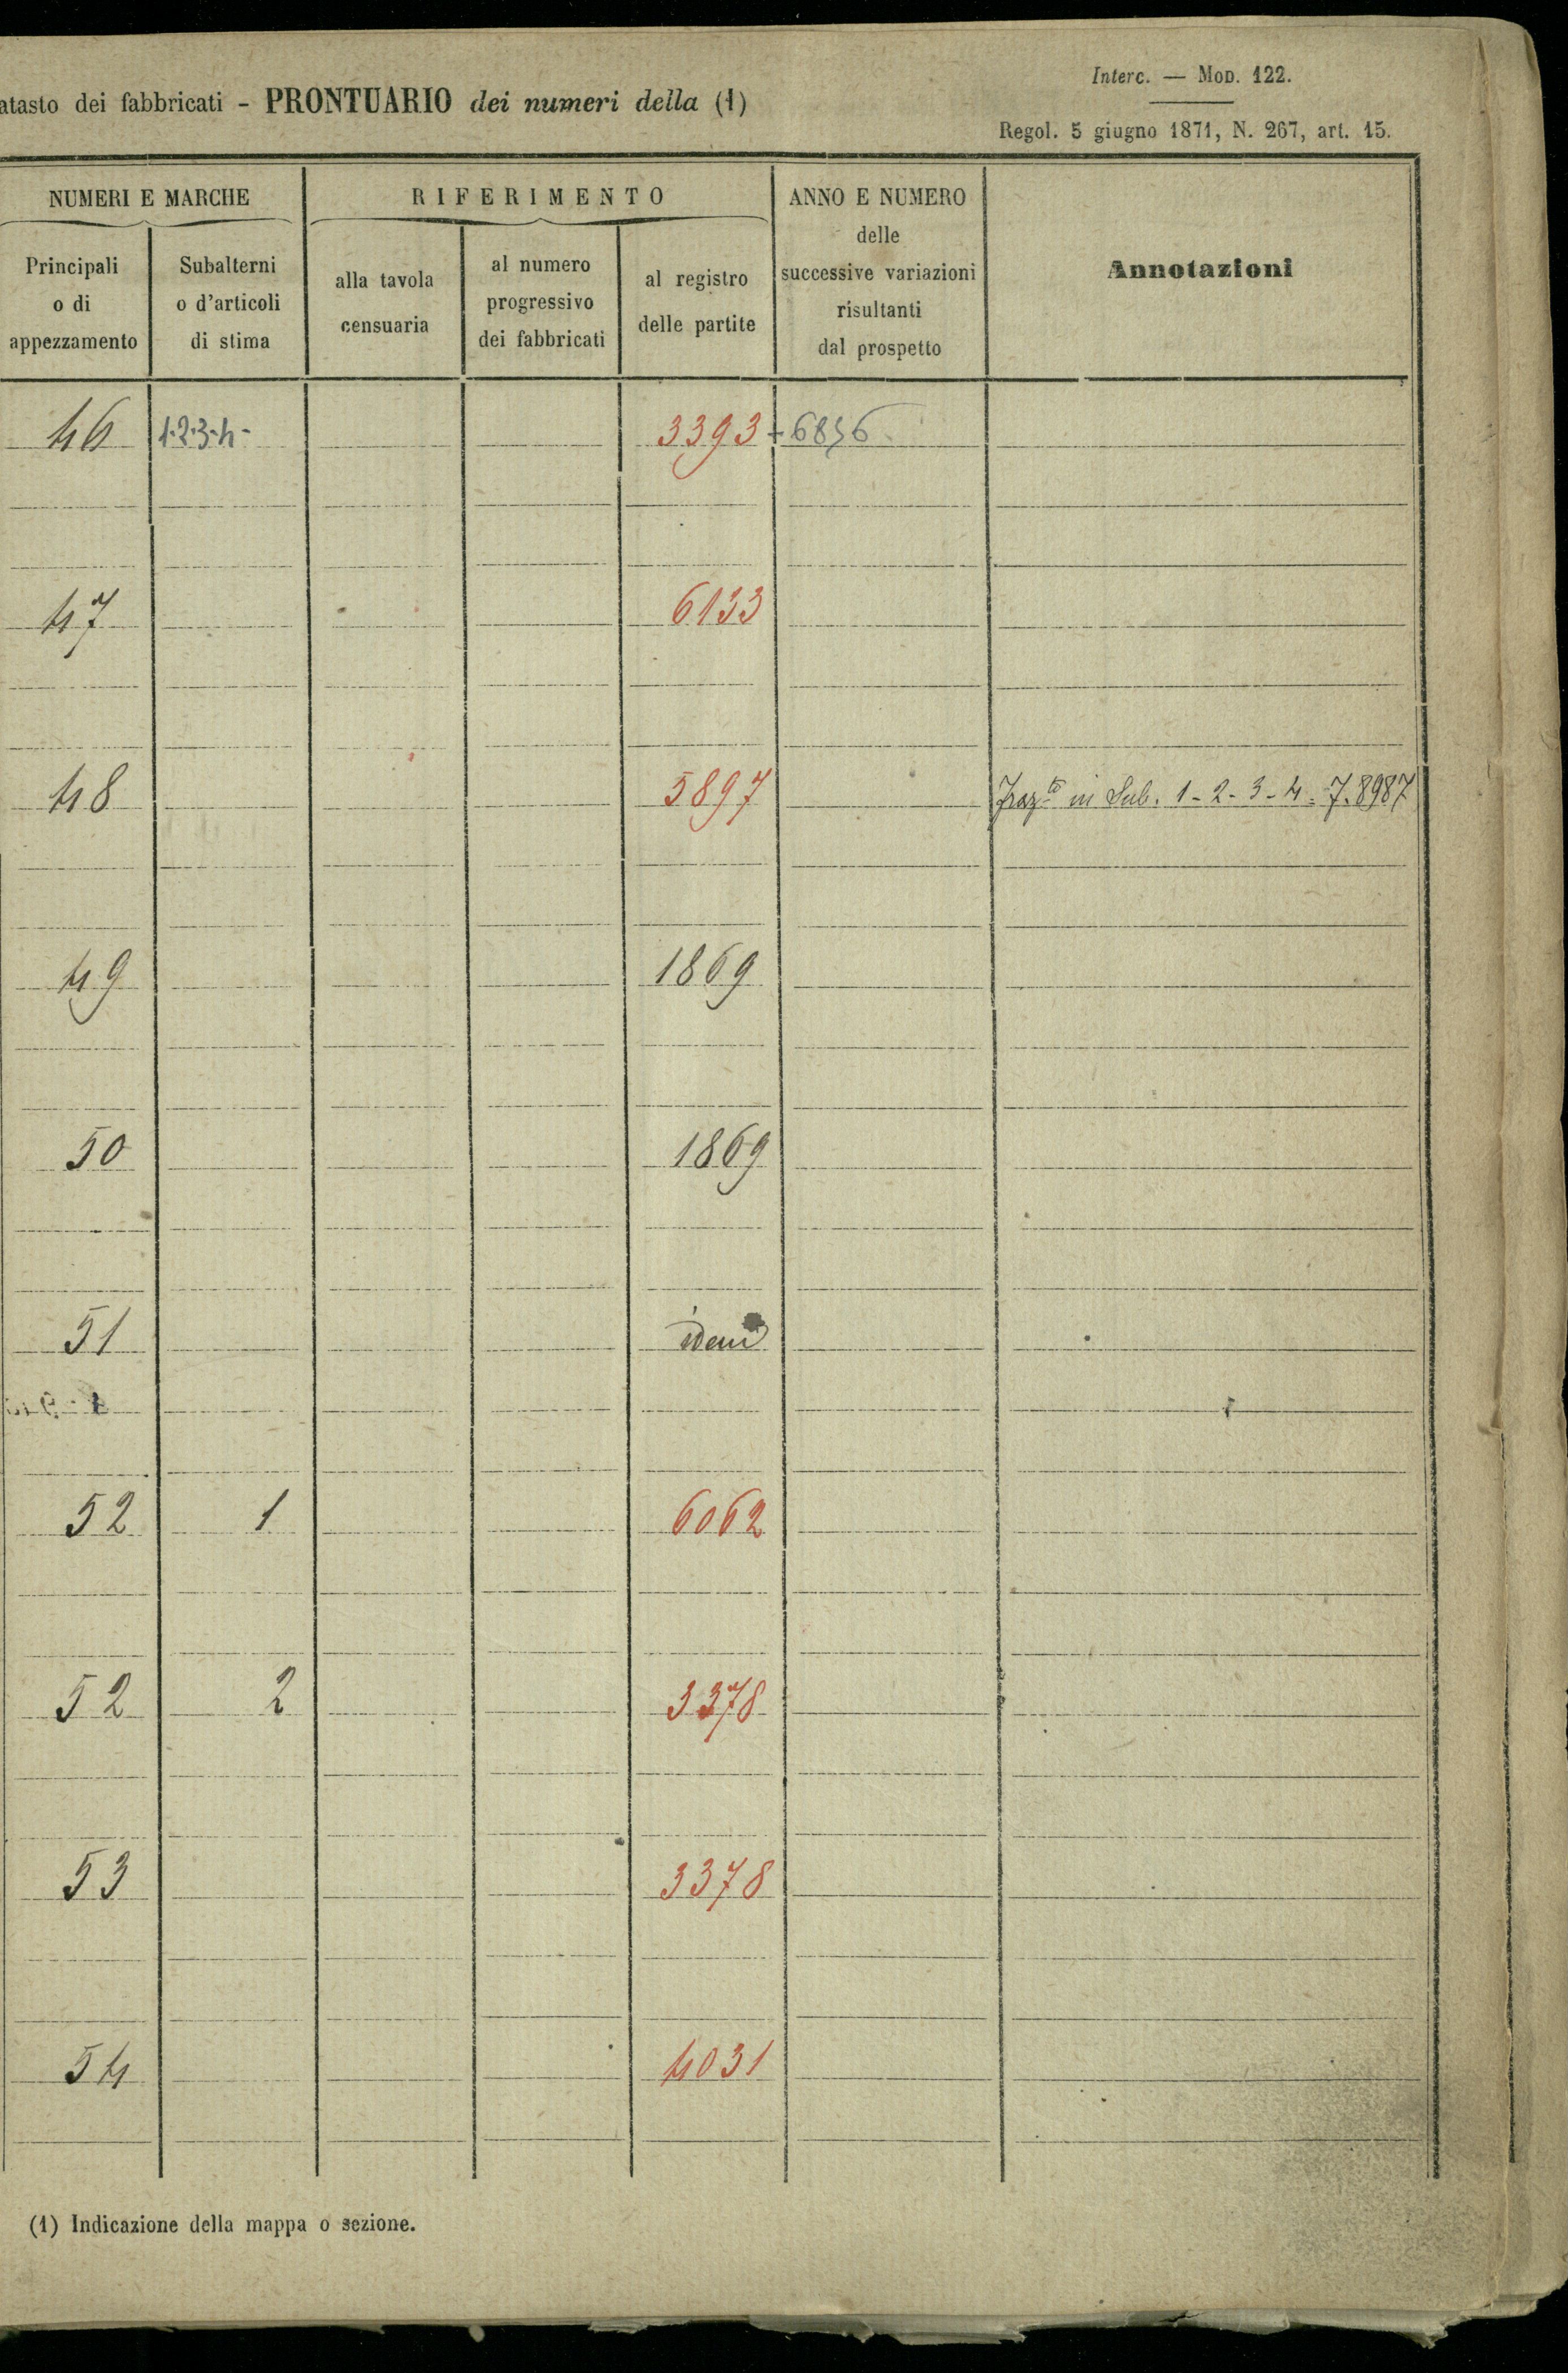 Interc. — Mod. 122.
atasto dei fabbricati - PRONTUARIO dei numeri della (1)
Regol. 5 giugno 1871, N. 267, art. 15.
NUMERI E MARCHE RIFERIMENTO ANNO E NUMERO
delle
successive variazioni
risultanti
dal prospetto
Annotazioni
Principali
o di
appezzamento
Subalterni
o d'articoli
di stima
alla tavola
censuaria
al numero
progressivo
dei fabbricati
al registro
delle partite
46 1-2-3-4- 3393 + 6856
47 6133
48 5897 Fraz.to in Sub. 1-2-3-4- 7.8987
49 1869
50 1869
51 idem
52 1 6062
52 2 3378
53 3378
54 4031
(1) Indicazione della mappa o sezione.